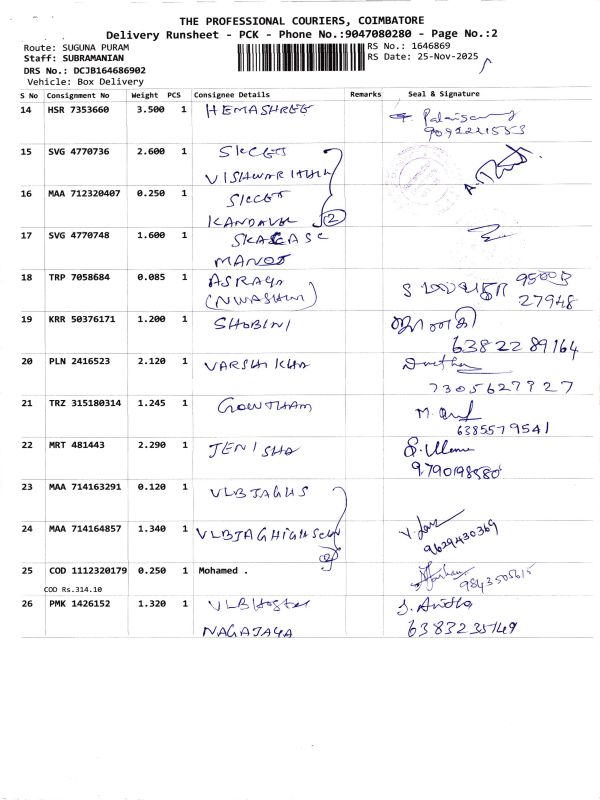 THE PROFESSIONAL COURIERS, COIMBATORE
Delivery Runsheet - PCK - Phone No.:9047080280 - Page No.:2
Route: SUGUNA PURAM
RS No.: 1646869
Staff: SUBRAMANIAN
RS Date: 25-Nov-2025
DRS No.: DCJB164686902
Vehicle: Box Delivery
S No Consignment No Weight PCS Consignee Details Remarks Seal & Signature
14 HSR 7353660 3.500 1 HEMASHREE
9092221553
15 SVG 4770736 2.600 1 SKCET
16 MAA 712320407 0.250 1 SKCET
KANDAVEL 2
17 SVG 4770748 1.600 1
MANOJ
18 TRP 7058684 0.085 1 ASRAYA
(NIWASHINI)
27948
19 KRR 50376171 1.200 1 SHOBINI ஜானகி
6382289164
20 PLN 2416523 2.120 1 VARSHIKHA
7305627727
21 TRZ 315180314 1.245 1 GOWTHAM
6385579541
22 MRT 481443 2.290 1 JENISHA
9790198580
23 MAA 714163291 0.120 1 VLBJAGHS
24 MAA 714164857 1.340 1
9629430369
25 COD 1112320179 0.250 1 Mohamed .
9843505615
COD Rs.314.10
26 PMK 1426152 1.320 1 VLB Hostel
NAGAJAYA 6383235149